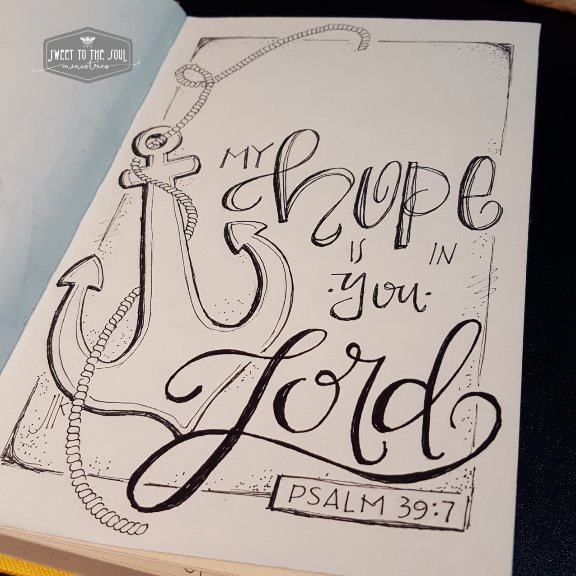 SWEET TO THE SOUL
ministries
MY hope
IS IN
·you·
Lord
PSALM 39:7